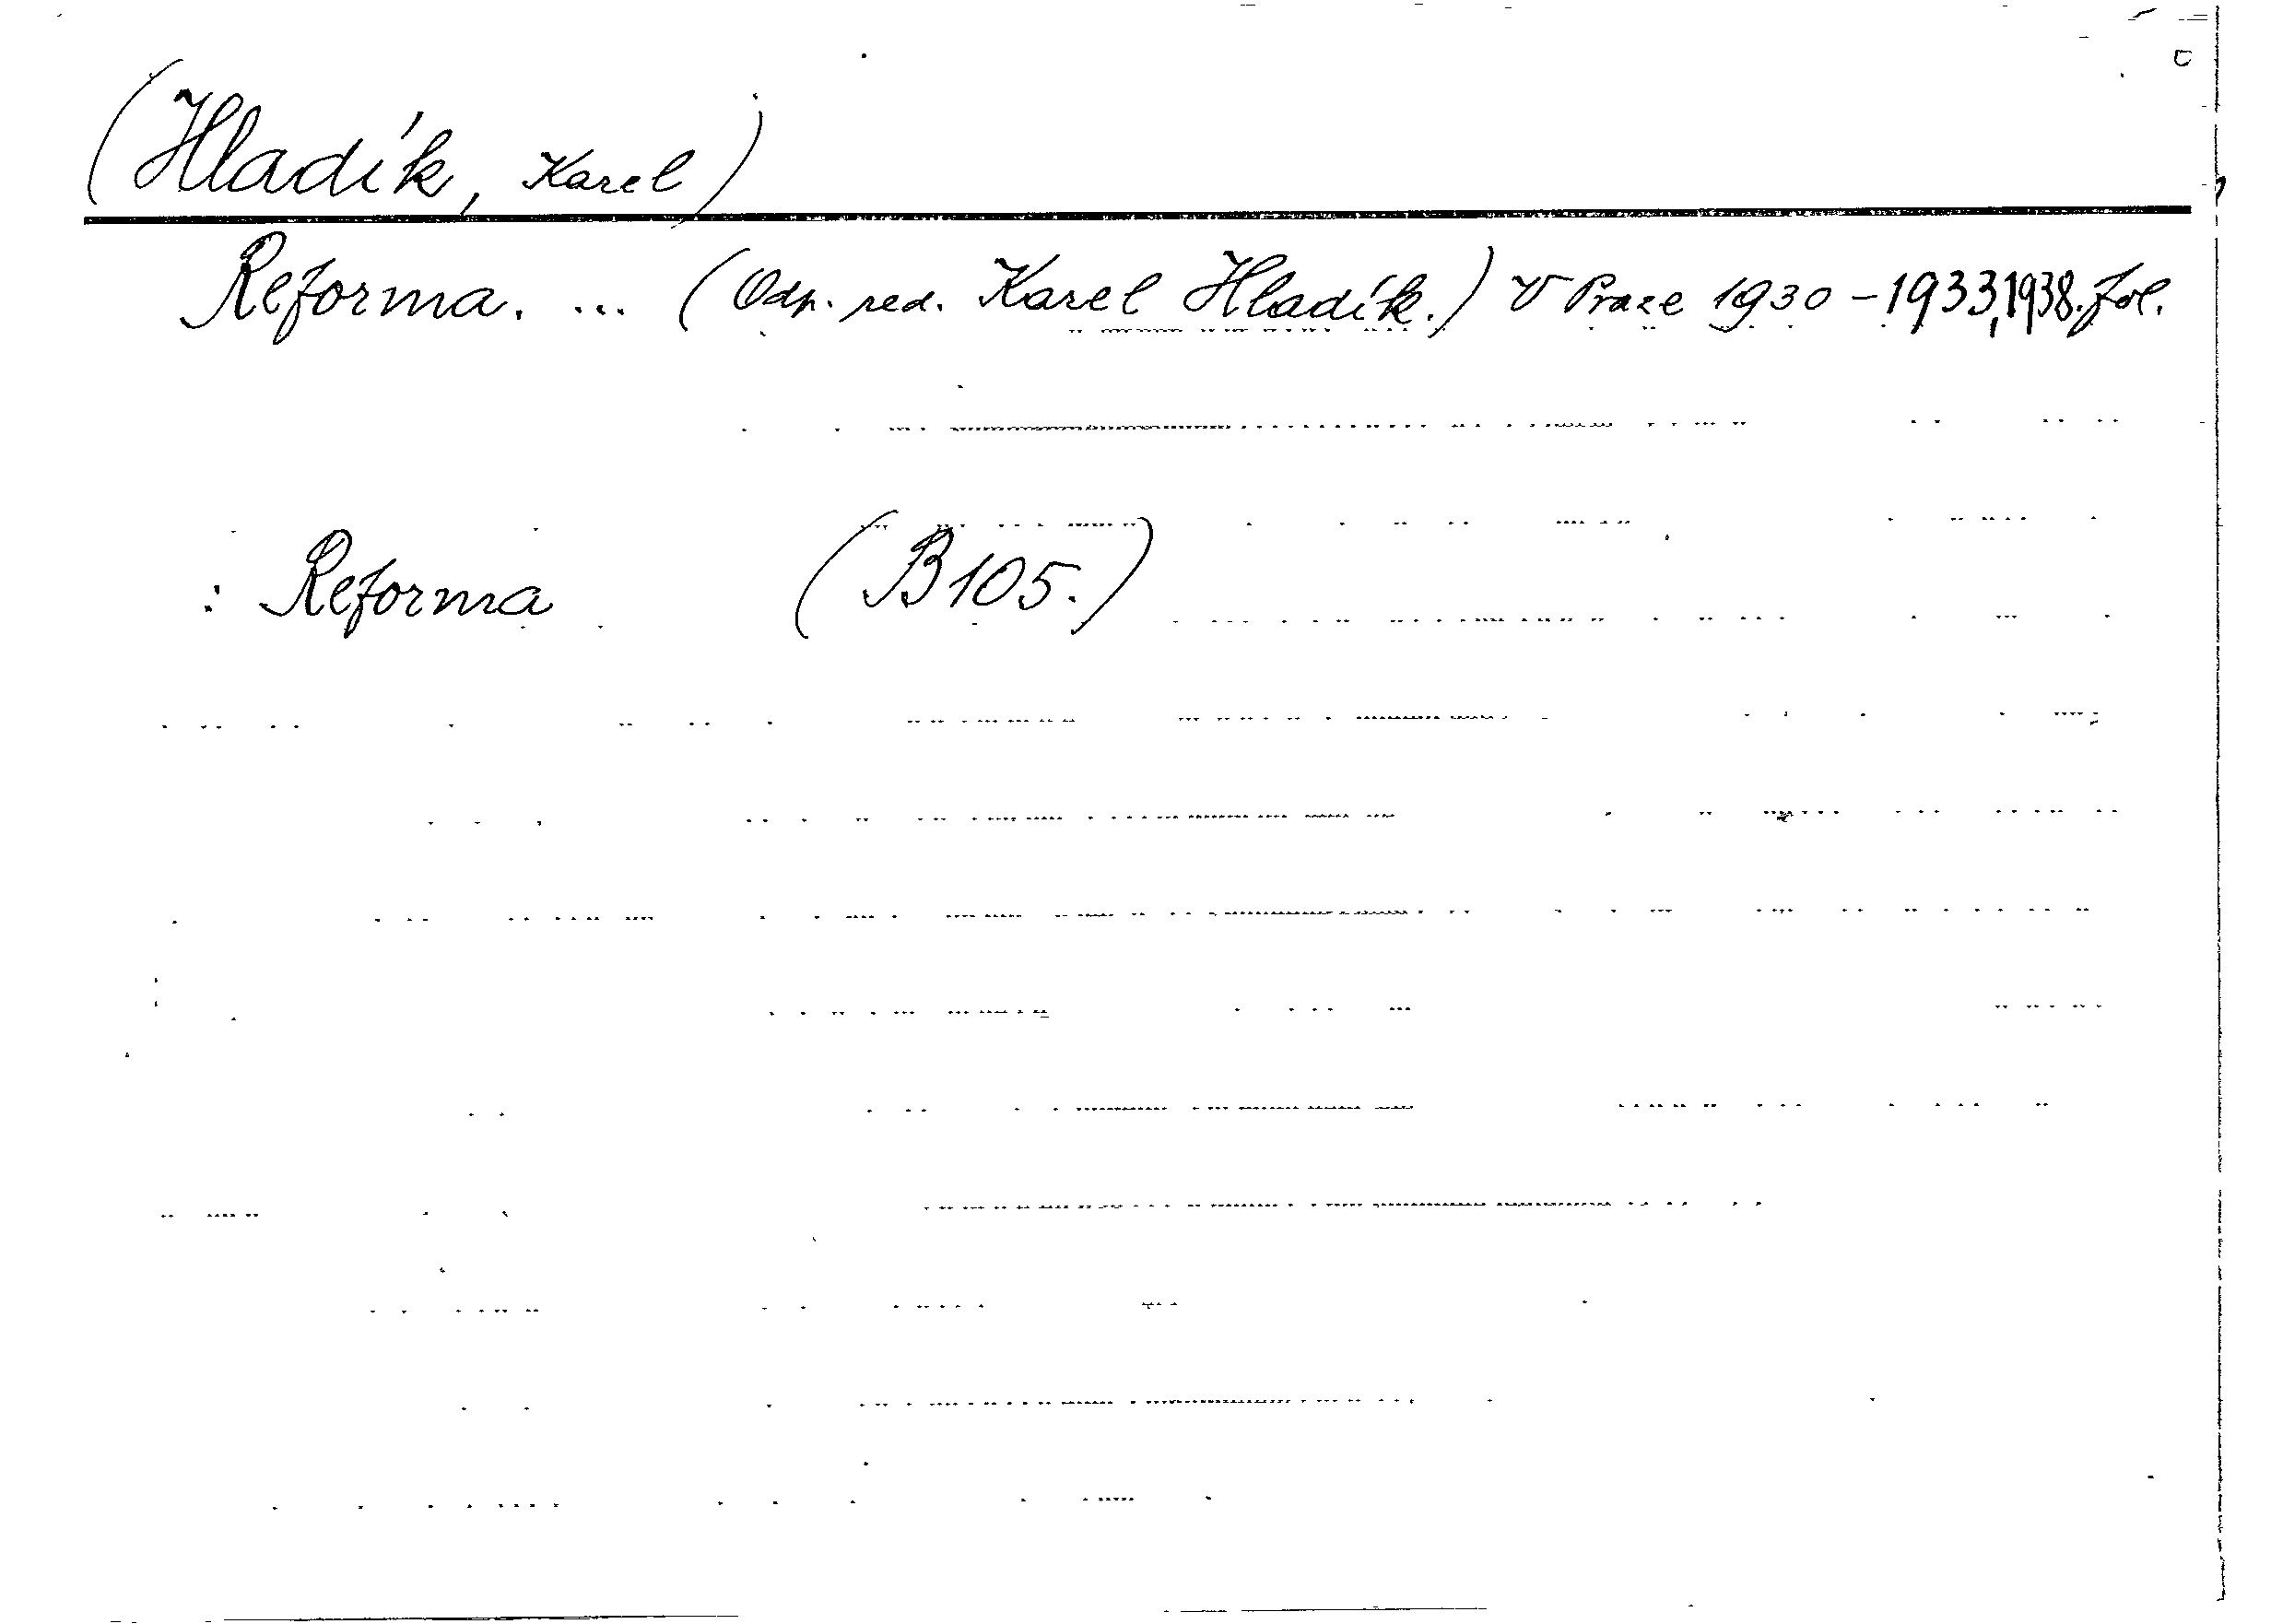 (Hladík, Karel)
Reforma. ... (Odp. red. Karel Hladík.) V Praze 1930-1933, 1938. fol.
: Reforma (B105.)